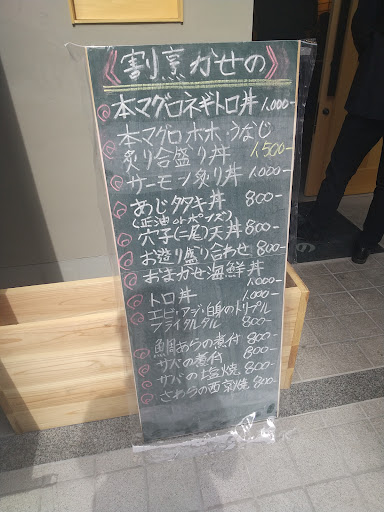 《割烹かせの》
本マグロネギトロ丼 1.000-
本マグロホホ、うなじ
炙り合盛り丼 1,500-
サーモン炙り丼 1.000-
あじタタキ丼 800-
(正油orポンズ)
穴子(二尾)天丼 800-
お造り盛り合わせ 800-
おまかせ海鮮丼 1.000-
トロ丼 1.000-
エビ・アジ・白身のトリプル
フライタルタル 800-
鯛あらの煮付 800-
サバの煮付 800-
サバの塩焼 800-
さわらの西京焼 800-